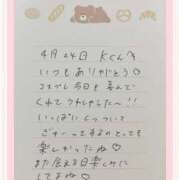 4月24日 Kくんへ
いつもありがとう♡
コスプレ今日も喜んで
くれてうれしかったー!!
いっぱいくっついて
ぎゅーってするのとっても
楽しかったね♡
また会える日楽しみに
してるね♡